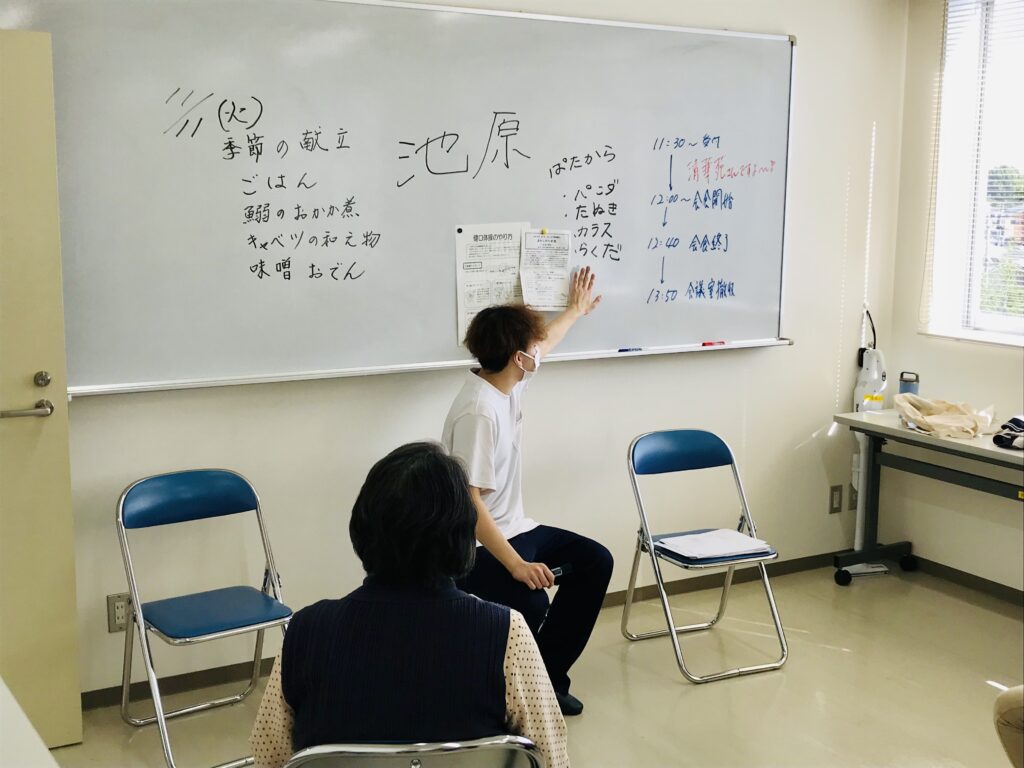 11/11(火)
季節の献立
ごはん
鰯のおかか煮
キャベツの和え物
味噌おでん
池原
健口体操のやり方
ぱたから
・パンダ
・たぬき
・カラス
・らくだ
11:30～受付
清華苑さんですよ〜!
12:00～会食開始
12:40 会食終了
13:50 会議室撤収